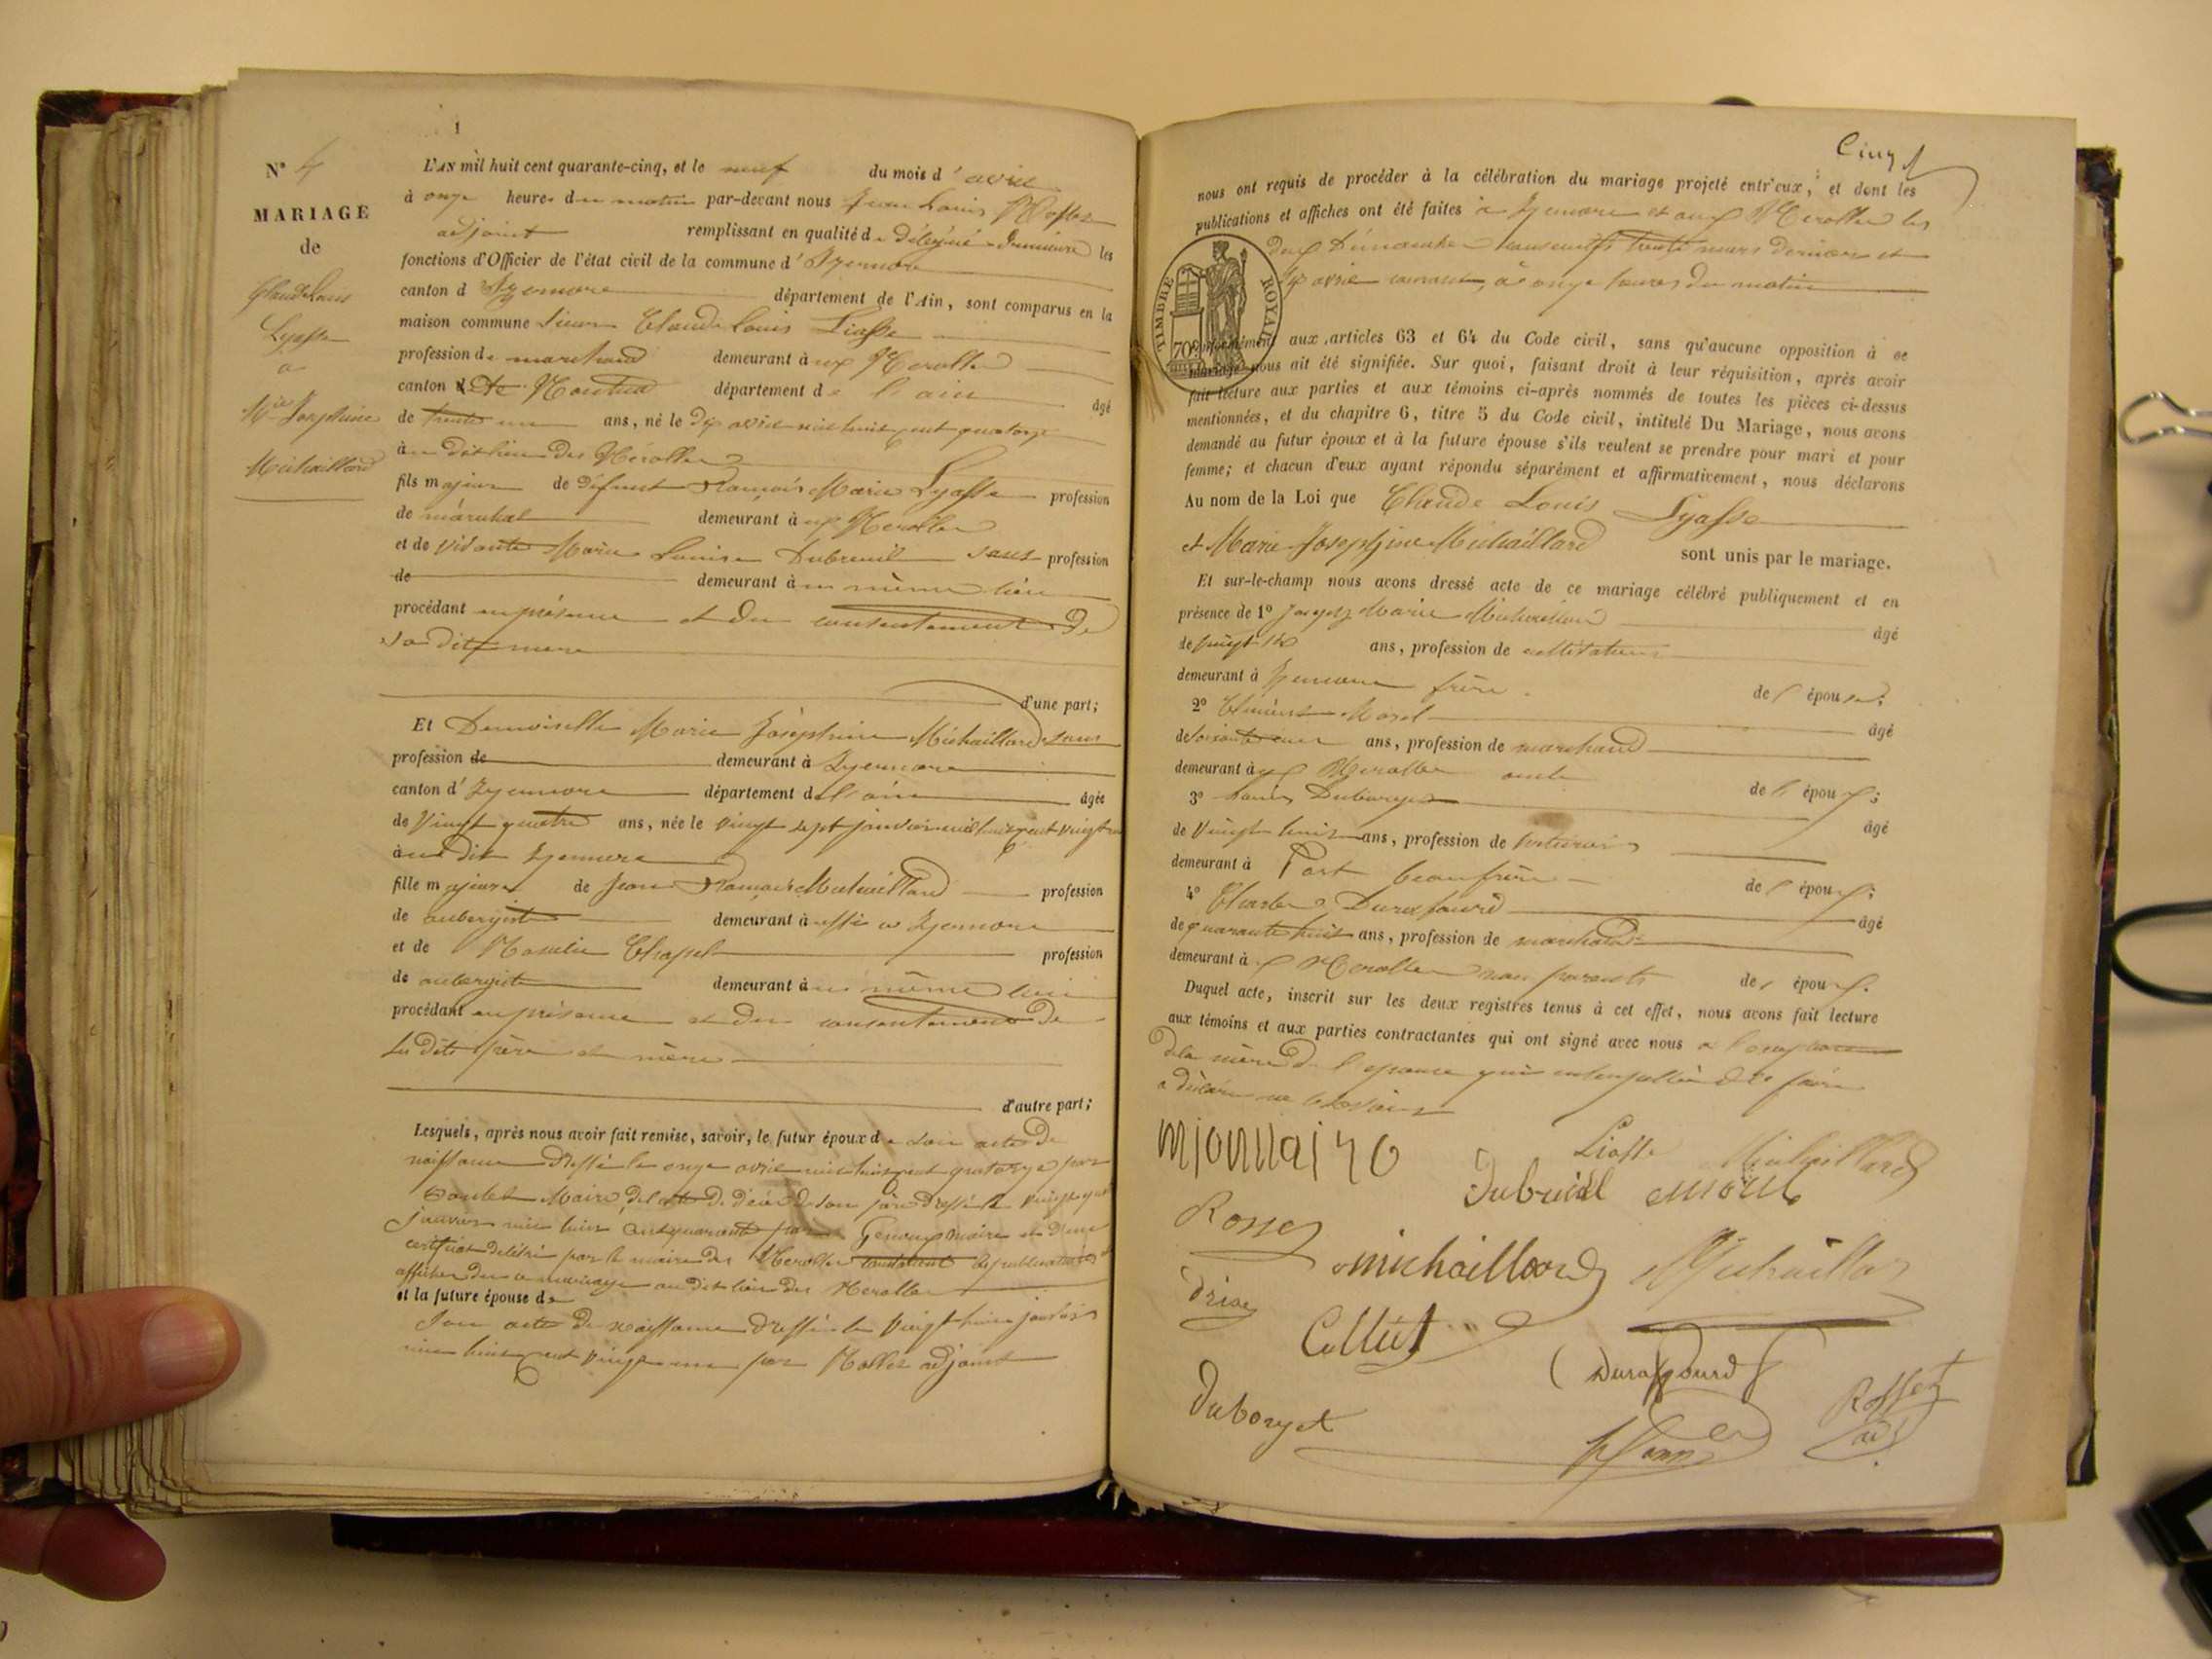 1
N° 4
MARIAGE
de
Claude Louis
Lyasse
a
Mie Josephine
Michaillard
L'AN mil huit cent quarante-cinq, et le neuf du mois d'avril
à onze heures du matin par-devant nous Jean Louis
adjoint remplissant en qualité de délégué les
fonctions d'Officier de l'état civil de la commune d'Izernore
canton d'Izernore département de l'Ain, sont comparus en la
maison commune Sieur Claude Louis Liasse
profession de marchand demeurant à
canton de Nantua département de l'ain âgé
de trente un ans, né le dix avril mil huit cent quatorze
au dit lieu des
fils majeur de défunt François Marie Lyasse profession
de maréchal demeurant
et de vivante Marie Louise Dubreuil sans profession
de demeurant au même lieu
procédant en présence et du consentement de
sa dite mere
d'une part;
Et Demoiselle Marie Joséphine Michaillard sans
profession de demeurant à Izernore
canton d'Izernore département de l'ain âgée
de vingt quatre ans, née le vingt sept janvier mil huit cent vingt un
au dit Izernore
fille majeure de Jean François Michaillard profession
de aubergiste demeurant aussi a Izernore
et de Chapel profession
de aubergiste demeurant au même lieu
procédant en présence et du consentement de
ses dits père et mère
d'autre part;
Lesquels, après nous avoir fait remise, savoir, le futur époux de son acte de
naissance dressé le onze avril mil huit cent quatorze par
Maire, de l'acte de décès de son père dressé le
janvier mil huit cent quarante par maire et d'un
certificat délivré par le maire des constatant les publications et
affiches du mariage au dit lieu des
et la future épouse de
son acte de naissance dressé le vingt huit janvier
mil huit cent vingt un par adjoint
Cinq
nous ont requis de procéder à la célébration du mariage projeté entr'eux, et dont les
publications et affiches ont été faites à Izernore et aux les
deux Dimanches consécutifs trente mars dernier et
avril courant, à onze heures du matin
TIMBRE ROYAL
70c
Conformément aux articles 63 et 64 du Code civil, sans qu'aucune opposition à ce
mariage nous ait été signifiée. Sur quoi, faisant droit à leur réquisition, après avoir
fait lecture aux parties et aux témoins ci-après nommés de toutes les pièces ci-dessus
mentionnées, et du chapitre 6, titre 5 du Code civil, intitulé Du Mariage, nous avons
demandé au futur époux et à la future épouse s'ils veulent se prendre pour mari et pour
femme; et chacun d'eux ayant répondu séparément et affirmativement, nous déclarons
Au nom de la Loi que Claude Louis Lyasse
et Marie Josephine Michaillard sont unis par le mariage.
Et sur-le-champ nous avons dressé acte de ce mariage célébré publiquement et en
présence de 1° Joseph Marie Michaillard âgé
de vingt six ans, profession de cultivateur
demeurant à Izernore frère de l'épouse;
2° Clément Morel âgé
de soixante ans, profession de marchand
demeurant oncle de l'époux;
3° Louis Duborget âgé
de vingt huit ans, profession de voiturier
demeurant à Port beau frère de l'époux;
4° Charles Duraffourd âgé
de quarante huit ans, profession de marchand
demeurant non parent de l'époux;
Duquel acte, inscrit sur les deux registres tenus à cet effet, nous avons fait lecture
aux témoins et aux parties contractantes qui ont signé avec nous a l'exception
de la mère de l'épouse qui interpellée de le faire
a déclaré ne le savoir
Liasse Michaillard
Dubreuil
Rosset
michaillard Michaillard
Collet
Duraffourd
Duborget
Rosset
adj